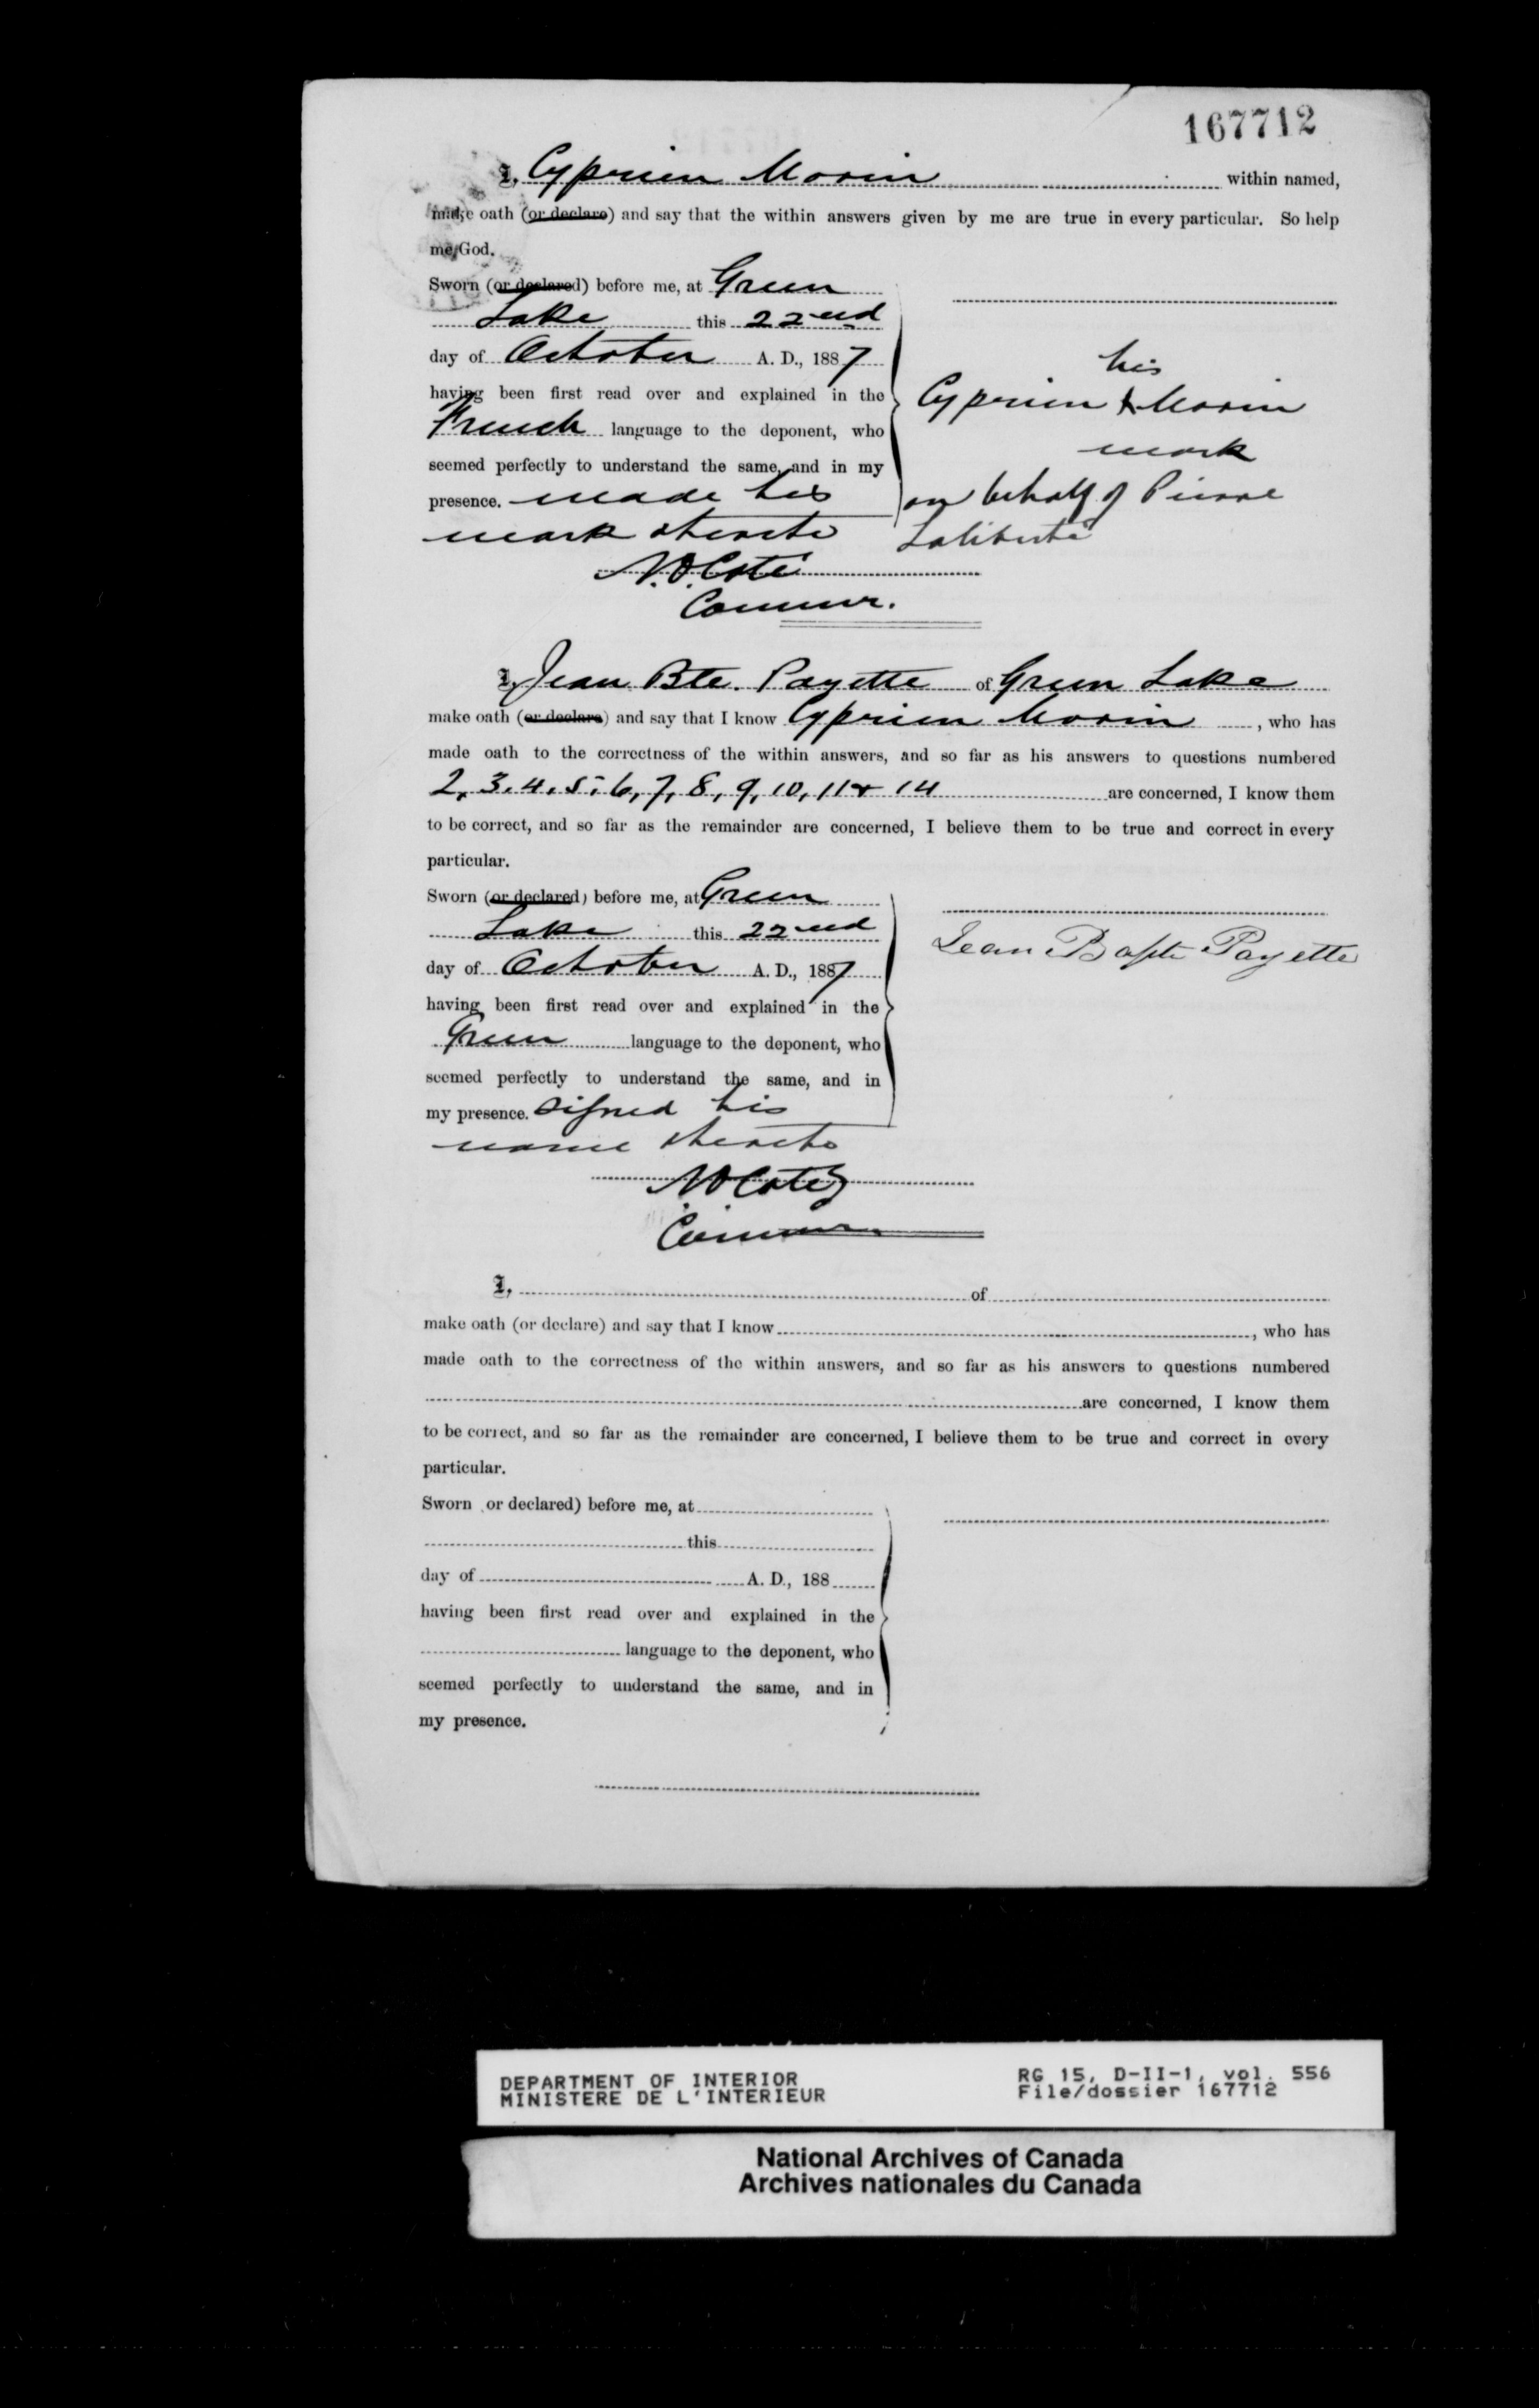 167712
I, Cyprien Morin within named,
make oath (or declare) and say that the within answers given by me are true in every particular. So help
me God.
Sworn (or declared) before me, at Green
Lake this 22nd
day of October A. D., 1887
having been first read over and explained in the
French language to the deponent, who
seemed perfectly to understand the same, and in my
presence. made his
mark thereto
his
Cyprien X Morin
mark
on behalf of Pierre
Laliberté
N.O. Coté
Commr.
I, Jean Bte. Payette of Green Lake
make oath (or declare) and say that I know Cyprien Morin, who has
made oath to the correctness of the within answers, and so far as his answers to questions numbered
2, 3, 4, 5, 6, 7, 8, 9, 10, 11 & 14 are concerned, I know them
to be correct, and so far as the remainder are concerned, I believe them to be true and correct in every
particular.
Sworn (or declared) before me, at Green
Lake this 22nd
day of October A. D., 1887
having been first read over and explained in the
Green language to the deponent, who
seemed perfectly to understand the same, and in
my presence. signed his
name thereto
Jean Bapte Payette
N.O. Coté
Commr.
I, of
make oath (or declare) and say that I know , who has
made oath to the correctness of the within answers, and so far as his answers to questions numbered
are concerned, I know them
to be correct, and so far as the remainder are concerned, I believe them to be true and correct in every
particular.
Sworn or declared) before me, at
this
day of A. D., 188
having been first read over and explained in the
language to the deponent, who
seemed perfectly to understand the same, and in
my presence.
DEPARTMENT OF INTERIOR
MINISTERE DE L'INTERIEUR
RG 15, D-II-1, vol. 556
File/dossier 167712
National Archives of Canada
Archives nationales du Canada